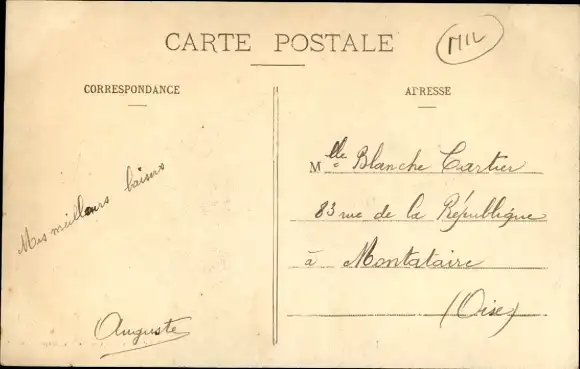 CARTE POSTALE
MIL
CORRESPONDANCE
Mes meilleurs baisers
Auguste
ADRESSE
Mlle Blanche Cartier
83 rue de la République
à Montataire
(Oise)